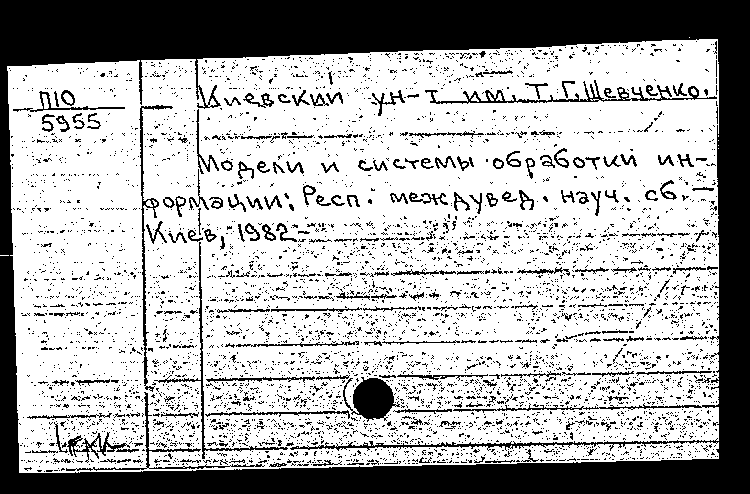 П10
5955
Киевский ун-т им. Т.Г. Шевченко.
Модели и системы обработки ин-
формации: Респ. междувед. науч. сб. —
Киев, 1982 -